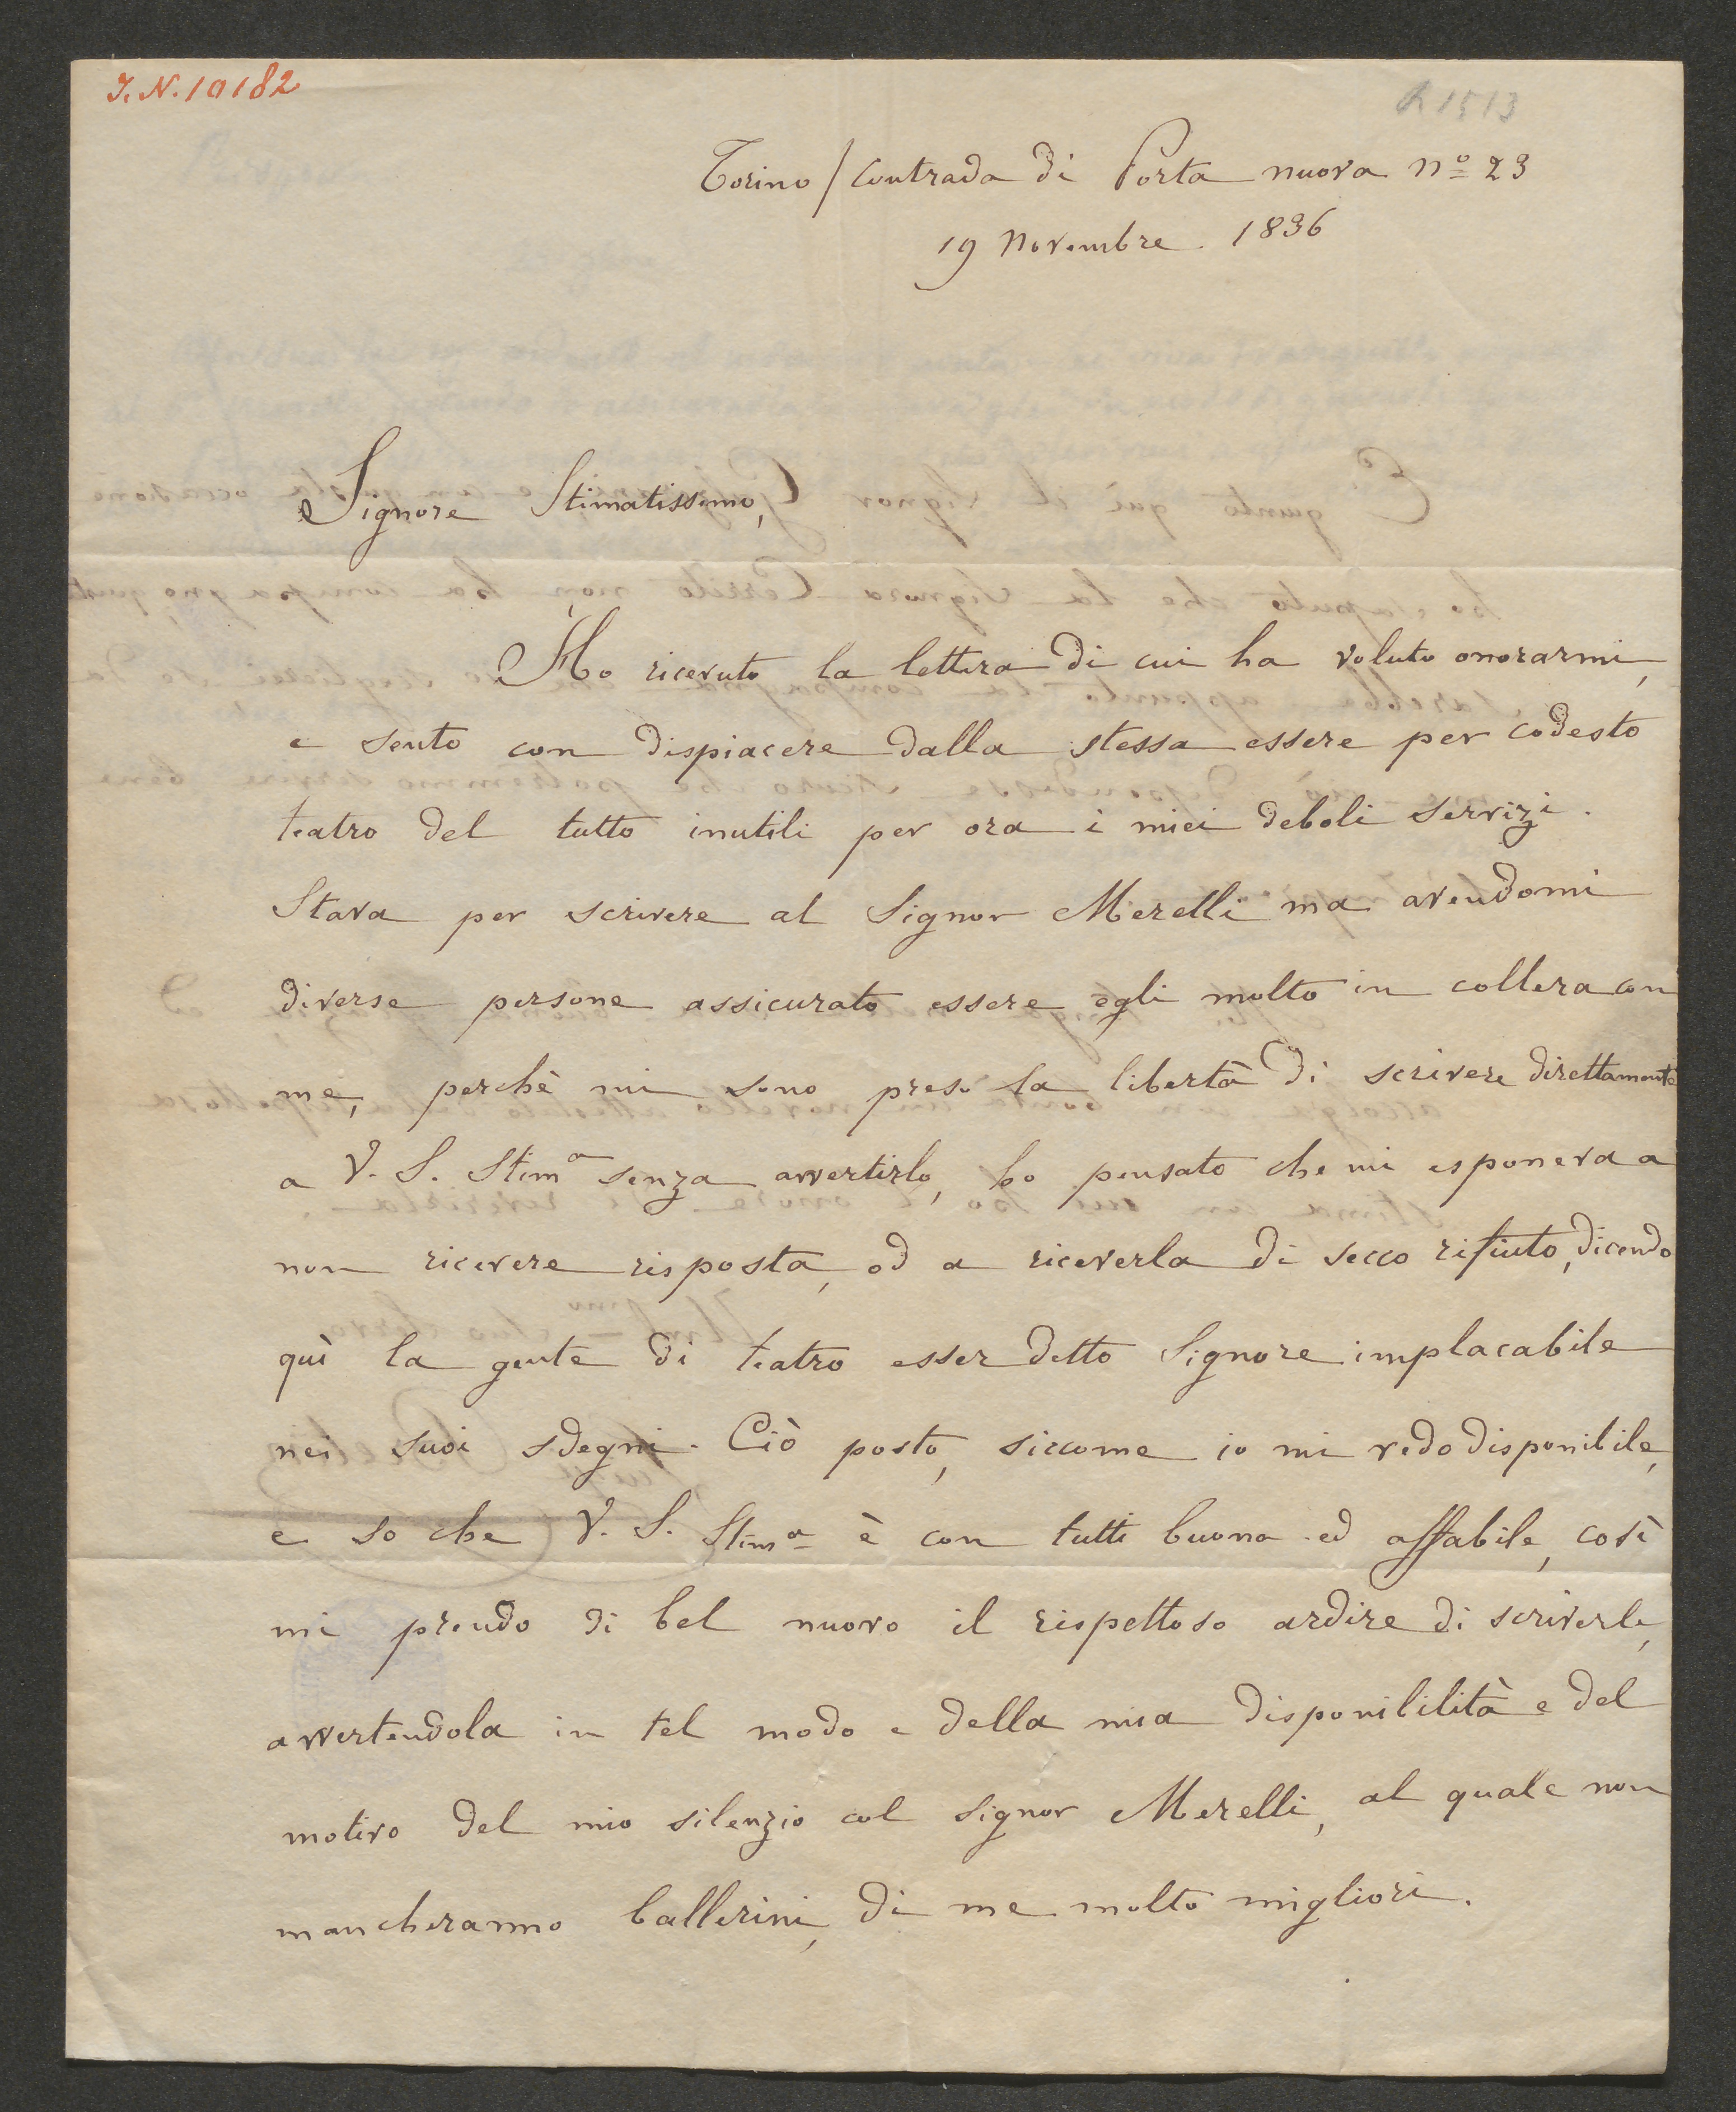 I. N. 10182
R 1513
Torino / Contrada di Porta nuova Nº 23
19 Novembre. 1836
Signore Stimatissimo,
Ho ricevuto la lettera di cui ha voluto onorarmi,
e sento con dispiacere dalla stessa essere per codesto
teatro del tutto inutili per ora i miei deboli servizi.
Stava per scrivere al Signor Merelli ma avendomi
diverse persone assicurato essere egli molto in collera con
me, perchè mi sono preso la libertà di scrivere direttamente
a V. S. Stimª senza avvertirlo, ho pensato che mi esponeva a
non ricevere risposta, od a riceverla di secco rifiuto, dicendo
quì la gente di teatro esser detto Signore implacabile
nei suoi sdegni. Ciò posto, siccome io mi vedo disponibile,
e so che V. S. Stimª è con tutti buona ed affabile, così
mi prendo di bel nuovo il rispettoso ardire di scriverle,
avvertendola in tel modo e della mia disponibilità e del
motivo del mio silenzio col signor Merelli, al quale non
mancheranno ballerini, di me molto migliori.